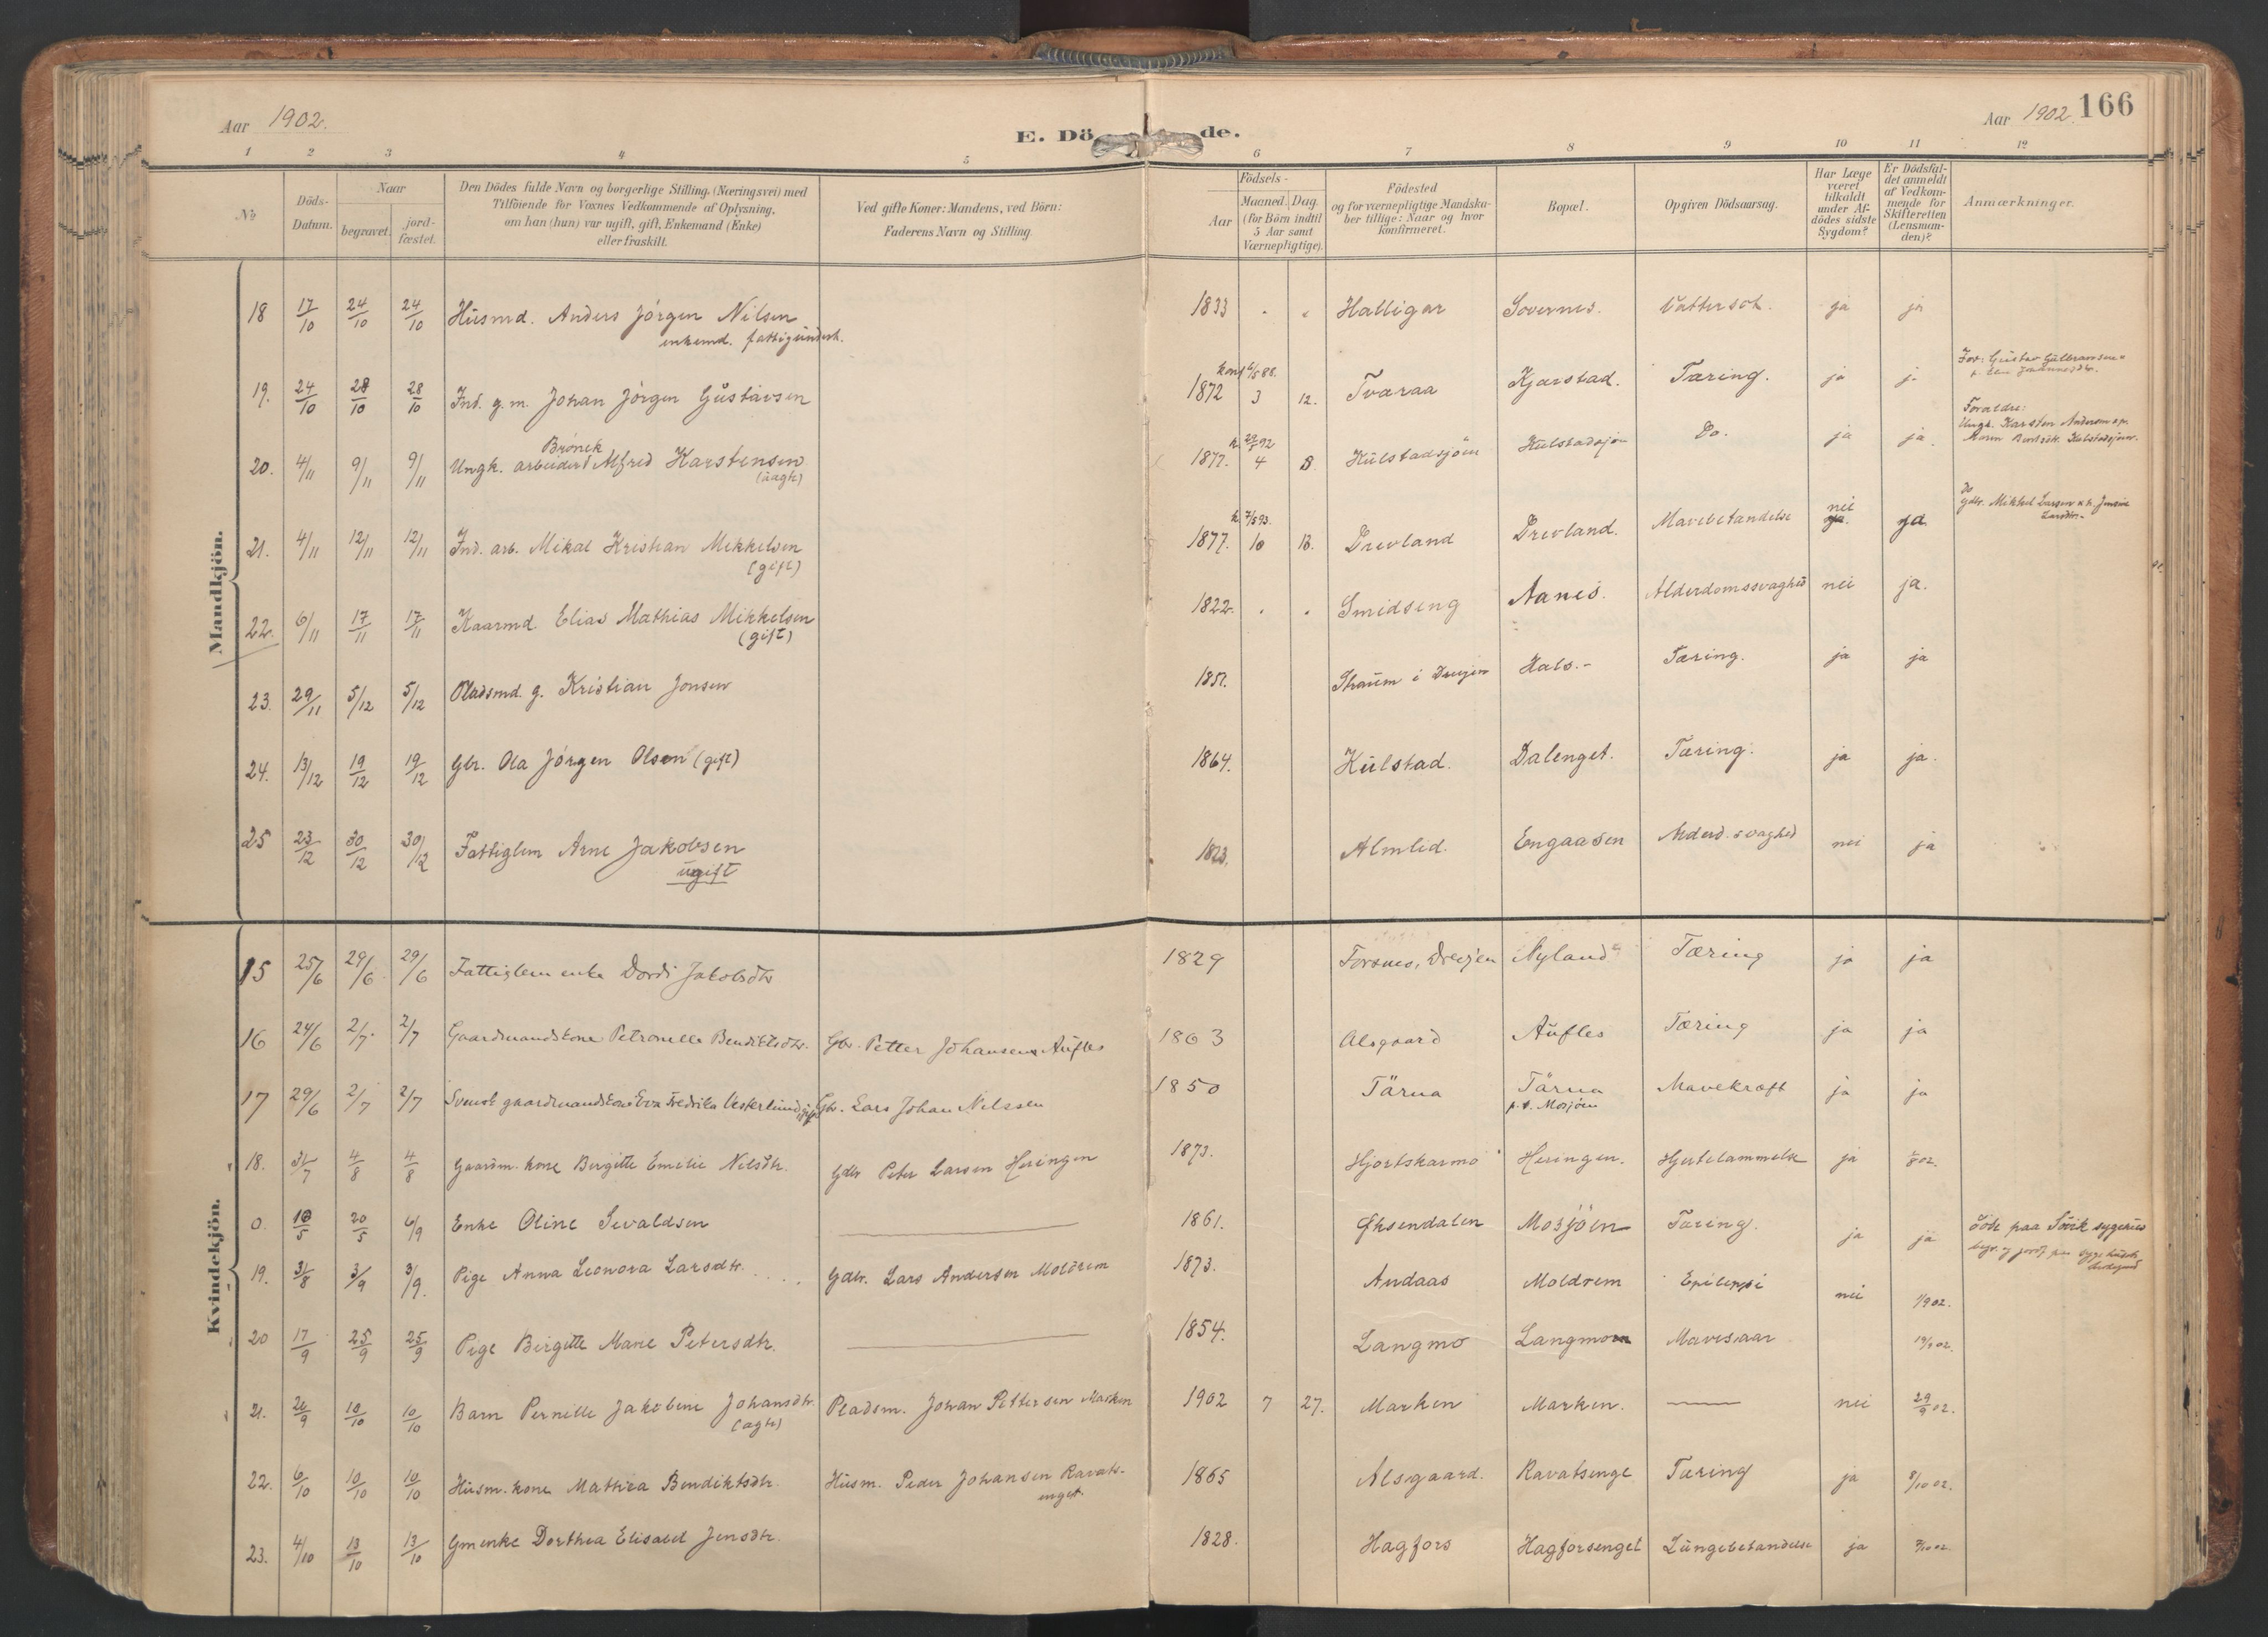 Aar 1902.
E. Dö de.
Aar 1902. 166
1 2 3 4 5 6 7 8 9 10 11 12
No
Döds-Datum.
Naar
begravet.
jord-fæstet.
Den Dödes fulde Navn og borgerlige Stilling, (Næringsvei) med
Tilföiende for Voxnes Vedkommende af Oplysning,
om han (hun) var ugift, gift, Enkemand (Enke)
eller fraskilt.
Ved gifte Koner: Mandens, ved Börn:
Faderens Navn og Stilling.
Födsels-
Aar
Maaned. Dag.
(for Börn indtil
5 Aar samt
Værnepligtige).
Födested
og for værnepligtige Mandska-
ber tillige: Naar og hvor
konfirmeret.
Bopæl.
Opgiven Dödsaarsag.
Har Læge
været
tilkaldt
under Af-
dödes sidste
Sygdom?
Er Dödsfal-
det anmeldt
af Vedkom-
mende for
Skifteretten
(Lensman-
den)?
Anmærkninger.
Mandkjön.
18 17/10 24/10 24/10 Husmd. Anders Jörgen Nilsen 1833 Halligar Sovernes. Vattersot. ja ja
enkemd. fattigunderh.
konf 6/5 88. For: Gustav
19. 24/10 28/10 28/10 Ind. g.m. Johan Jörgen Gustavsen 1872 3 12. Tværaa Kjærstad. Tæring. ja ja
Brönek k. 92 Forældre:
Ungk. Karsten Andersen
20. 4/11 9/11 9/11 Ungk. arbeider Alfred Karstensen 1877. 4 8. Kulstadsjöen Kulstadsjön Do. ja ja.
(uægte)
k. 7/5 93. nei Do
Gdbr. Mikkel Larsen Jensine
21. 4/11 12/11 12/11 Ind. arb. Mikal Kristian Mikkelsen 1877. 10 18. Drevland Drevland. Mavebetændelse ja. ja
(gift)
22. 6/11 17/11 17/11 Kaarmd. Elias Mathias Mikkelsen 1822. Smidseng Aanes. Alderdomssvaghed nei ja.
(gift)
23. 29/11 5/12 5/12 Pladsmd. g. Kristian Jonsen 1857. i Drevjen Hals.- Tæring. ja ja
24. 13/12 19/12 19/12 Gbr. Ola Jörgen Olsen (gift) 1864. Kulstad. Dalenget. Tæring. ja ja.
25 23/12 30/12 30/12 Fattiglem Arne Jakobsen 1823. Almlid. Engaasen Alderd. svaghed nei ja
ugift
Kvindekjön.
15 25/6 29/6 29/6 Fattiglem enke Dordi Jakobsdtr 1829 Forsnes, Drevjen Nyland Tæring ja ja
16 24/6 2/7 2/7 Gaardmandskone Petronelle Bendiktsdtr. Gbr. Petter Johansen Aufles 1863 Alsgaard Aufles Tæring ja ja
17 29/6 2/7 2/7 Svensk gaardmandskone Eva Fredrika Vesterlund gift Gbr. Lars Johan Nelssen 1850 Tärna Tärna Mavekræft ja ja
p.t. Mosjöen
18. 31/7 4/8 4/8 Gaardm. kone Birgitte Emelie Nilsdtr. Gdbr Peter Larsen Heringen 1873. Hjortskarmo Heringen. Hjertelammelse ja 1/8 02.
0. 18/5 20/5 6/9 Enke Oline Sevaldsen 1861. Öksendalen Mosjöen Tæring. ja ja Död paa Söiik sygehus
19. 31/8 3/9 3/9. Pige Anna Leonora Larsdtr. Gdbr. Lars Andersen Moldrem 1873. Andaas Moldrem Epilepsi nei 1/9 02.
20 17/9 25/9 25/9 Pige Birgitte Marie Petersdtr. 1854. Langmo Langmoen Mavesaar 19/9 02.
21. 26/9 10/10 10/10 Barn Pernille Jakobine Johansdtr. Pladsm. Johan Pettersen Marken 1902 7 27. Marken Marken. nei 29/9 02.
(ægte)
22. 6/10 10/10 10/10 Husm. kone Mathea Bendiktsdtr. Husm. Peder Johansen Ravats-enget. 1865 Alsgaard. Ravatsenge Tæring ja 8/10 02.
23. 4/10 13/10 13/10 Gmenke Dorthea Elisabet Jensdtr. 1828. Hagfors Hagforsenget Lungebetændelse ja 7/10 02.